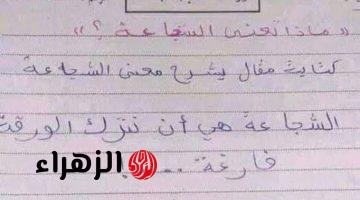 « ماذا تعني الشجاعة ؟ »
كتابة مقال يشرح معنى الشجاعة
الشجاعة هي أن تترك الورقة
فارغة ...
الزهراء